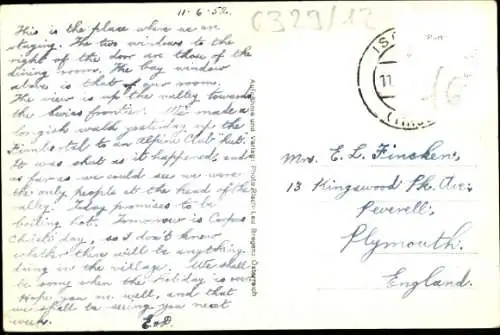 11-6-52.
This is the place where we are
staying. The two windows to the
right of the door are those of the
dining room. The bay window
above is that of our room.
The view is up the valley towards
the Swiss frontier. We made a
longish walk yesterday up the
to an Alpine Club "hut".
It was shut as it happened, and
as far as we could see we were
the only people at the head of the
valley. Today promises to be
boiling hot. Tomorrow is Corpus
Christi day, so I don't know
whether there will be anything
doing in the village. We shall
be home when the holiday is over.
Hope you are well, and that
we shall be seeing you next
week.
E & D.
0329/12
Aufnahme und Verlag:
11.
16
Mrs. E. L. Fincken,
13 Kingswood Pk. Ave.
Peverell,
Plymouth.
England.